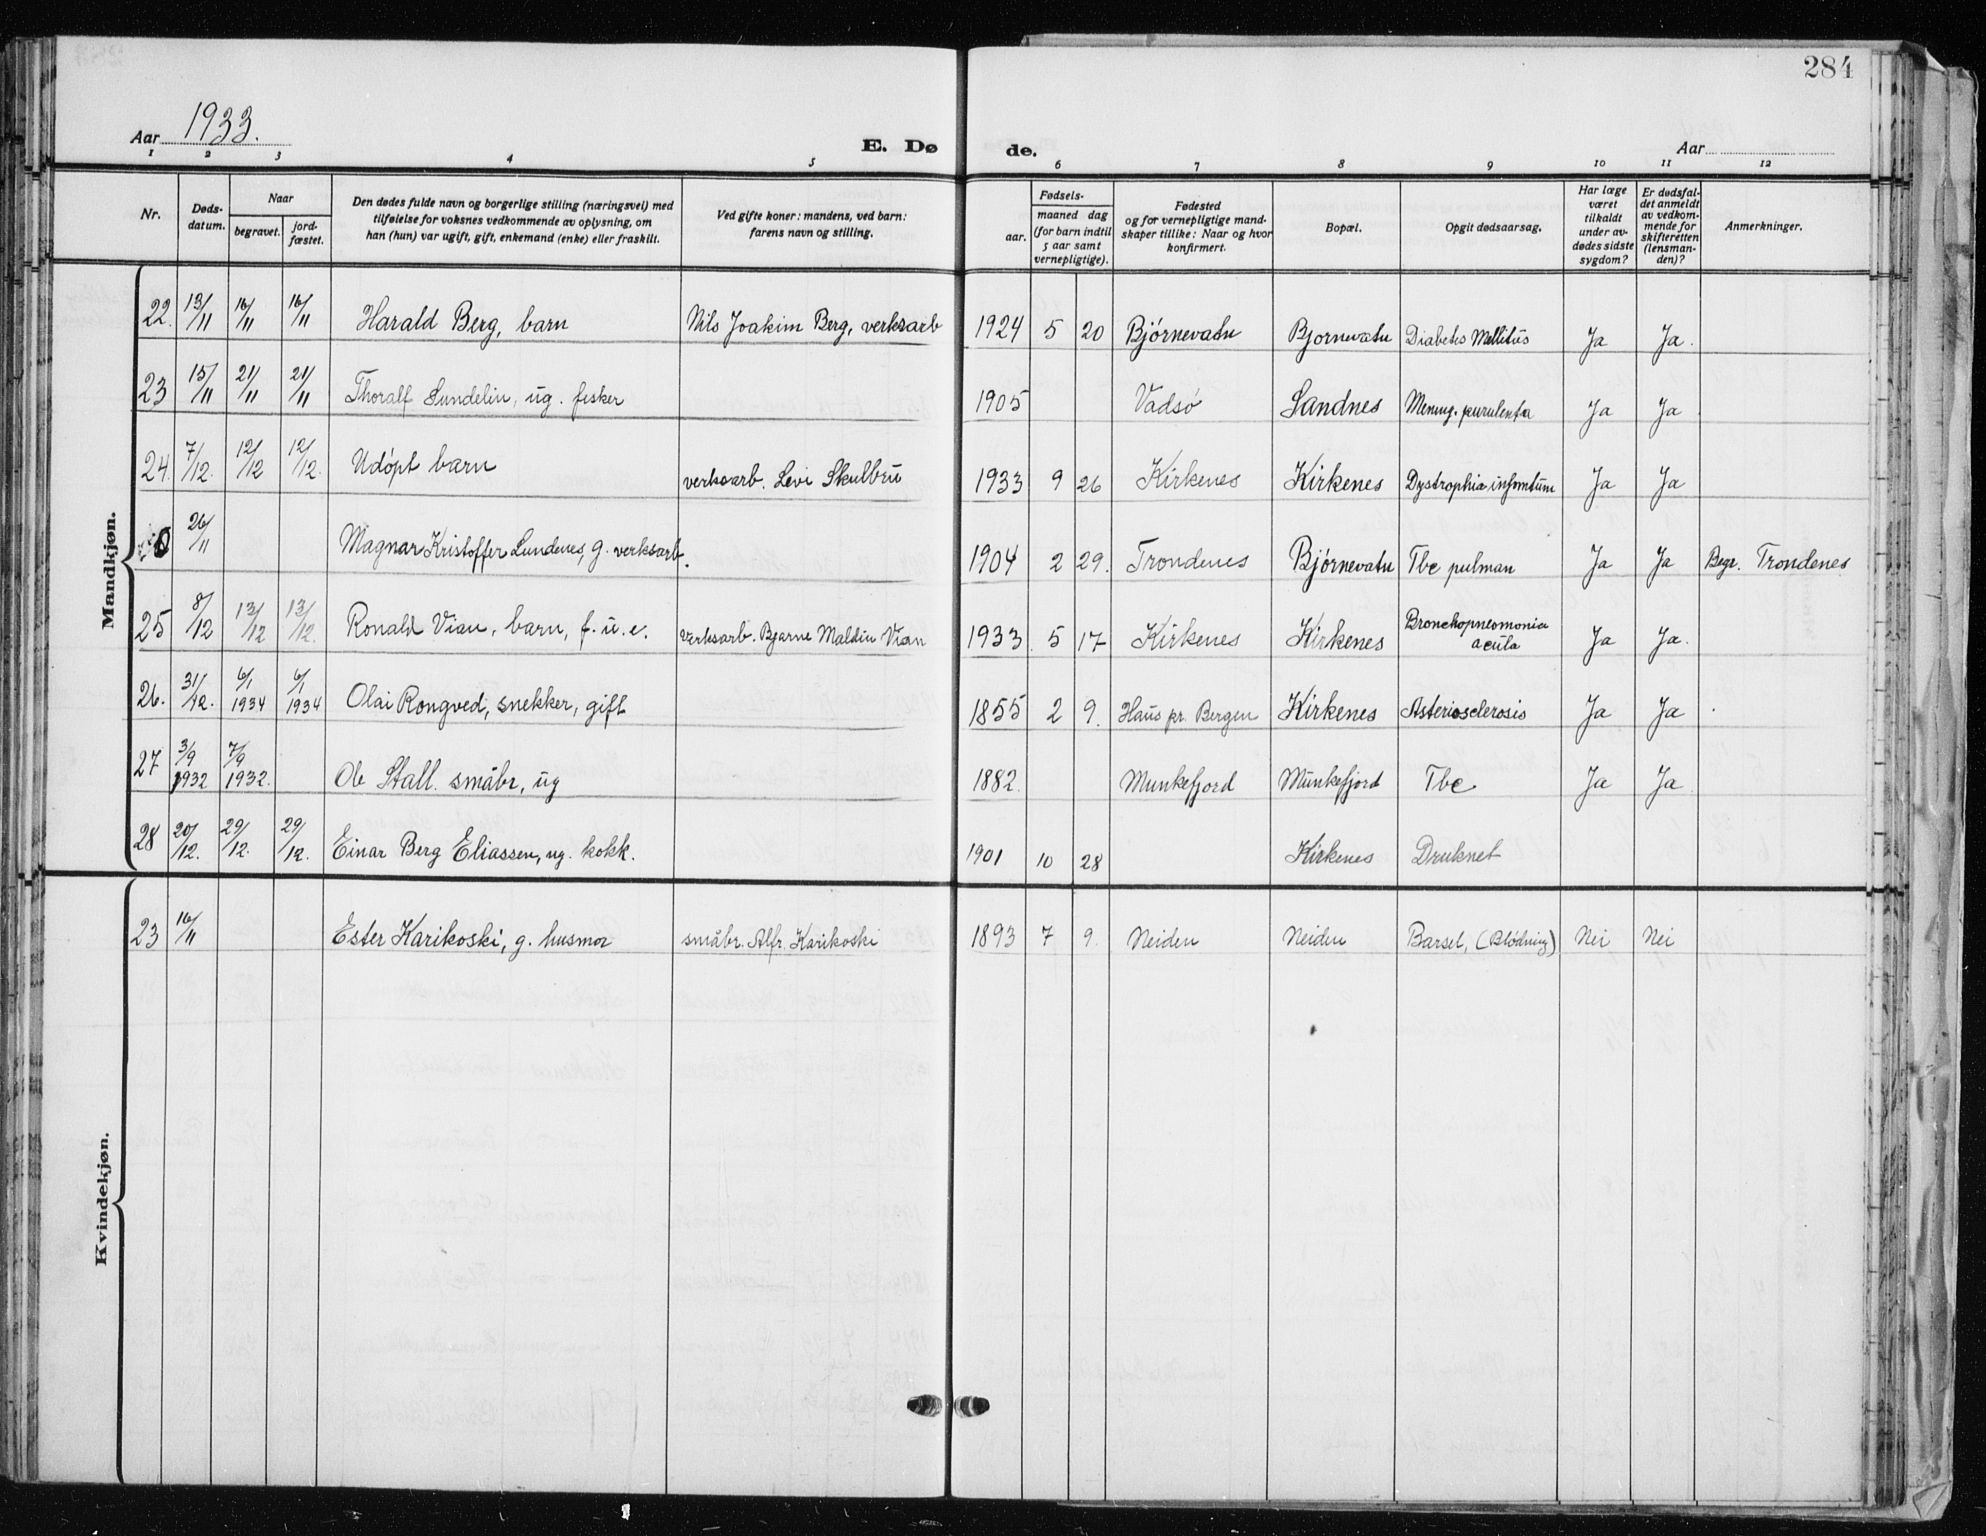 284
Aar 1933.
E. Dø
de.
Aar
1 2 3 4 5 6 7 8 9 10 11 12
Nr.
Døds-
datum.
Naar
begravet.
jord-
fæstet.
Den dødes fulde navn og borgerlige stilling (næringsvei) med
tilføielse for voksnes vedkommende av oplysning, om
han (hun) var ugift, gift, enkemand (enke) eller fraskilt.
Ved gifte koner: mandens, ved barn:
farens navn og stilling.
Fødsels-
aar.
maaned dag
(for barn indtil
5 aar samt
vernepligtige).
Fødested
og for vernepligtige mand-
skaper tillike: Naar og hvor
konfirmert.
Bopæl.
Opgit dødsaarsag.
Har læge
været
tilkaldt
under av-
dødes sidste
sygdom?
Er dødsfal-
det anmeldt
av vedkom-
mende for
skifteretten
(lensman-
den)?
Anmerkninger.
Mandkjøn.
22. 13/11 16/11 16/11 Harald Berg, barn Nils Joakim Berg, verksarb 1924 5 20 Bjørnevatn Bjornevatn Diabetes Mellitus Ja Ja.
23 15/11 21/11 21/11 Thoralf Lundelin, ug. fisker 1905 Vadsø Sandnes Mening. purulenta Ja Ja
24. 7/12. 12/12 12/12. Udøpt barn verksarb. Levi Skulbru 1933 9 26 Kirkenes Kirkenes Dystrophia infantum Ja Ja
0 26/11 Magnar Kristoffer Lundenes, g. verksarb. 1904 2 29. Trondenes Bjørnevatn Tbc pulman Ja Ja Begr. Trondenes
25 8/12 13/12 13/12. Ronald Vian, barn, f. u. e. verksarb. Bjarne Maldin Vian 1933. 5 17 Kirkenes Kirkenes Bronchopneomonia
acuta Ja Ja.
26. 31/12. 6/1 1934 6/1 1934 Olai Rongved, snekker, gift 1855 2 9. Haus pr. Bergen Kirkenes Asteriosclerosis Ja Ja
27 3/9 1932 7/9 1932. Ole Stall. småbr, ug 1882. Munkefjord Munkefjord Tbc Ja Ja
28 20/12. 29/12. 29/12. Einar Berg Eliassen, ug. kokk. 1901 10 28 Kirkenes Druknet
Kvindekjøn.
23 16/11 Ester Karikoski, g. husmor småbr. Alfr. Karikoski 1893 7 9. Neiden Neiden Barsel, (Blødning) Nei Nei